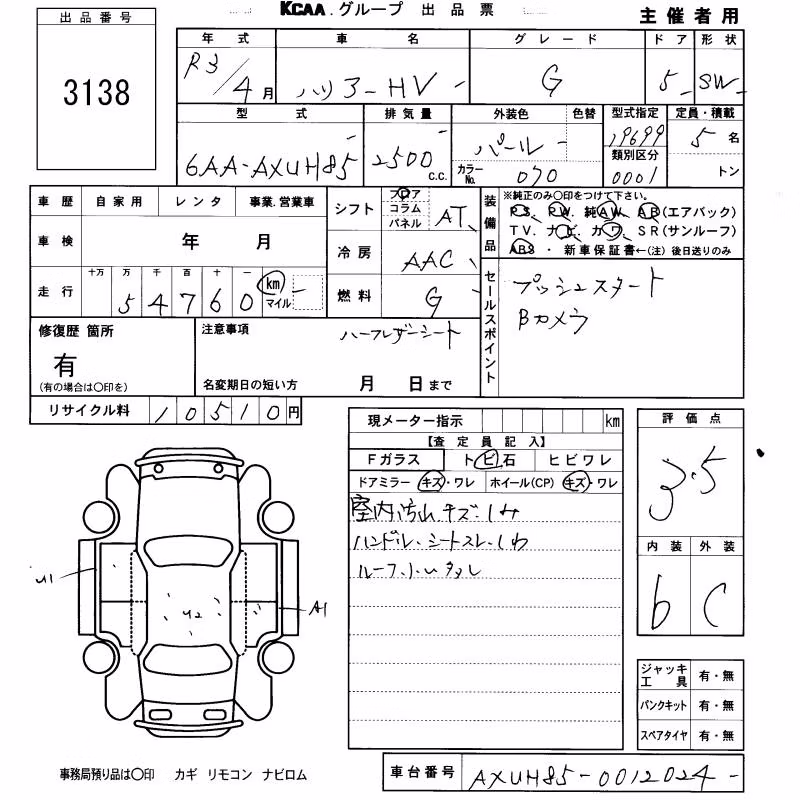 KCAA.グループ 出品票
主催者用
出品番号
3138
年式 車名 グレード ドア 形状
R3/4月 ハリアーHV G 5 SW
型式 排気量 外装色 色替 型式指定 定員・積載
6AA-AXUH85 2500 c.c. パール 19699 5名
カラーNo. 070 類別区分 0001 トン
車歴 自家用 レンタ 事業.営業車
車検 年 月
走行 十万 万 千 百 十 一
54760 km マイル
シフト フロア コラム パネル AT
冷房 AAC
燃料 G
装備品
※純正のみ〇印をつけて下さい。
PS、PW、純AW、AB(エアバック)
TV、ナビ、カワ、SR(サンルーフ)
ABS・新車保証書←(注)後日送りのみ
セールスポイント
プッシュスタート
Bカメラ
修復歴 箇所
有
(有の場合は〇印を)
注意事項
ハーフレザーシート
名変期日の短い方 月 日まで
リサイクル料 10510円
現メーター指示 km
【査定員記入】
Fガラス トビ石 ヒビワレ
ドアミラー キズ・ワレ ホイール(CP) キズ・ワレ
室内汚れ.キズ.シミ
ハンドル.シートスレ.シワ
ルーフ.小.Uタレ
評価点
3.5
内装 外装
b C
U1
U2
A1
ジャッキ工具 有・無
パンクキット 有・無
スペアタイヤ 有・無
事務局預り品は〇印 カギ リモコン ナビロム
車台番号 AXUH85-0012024